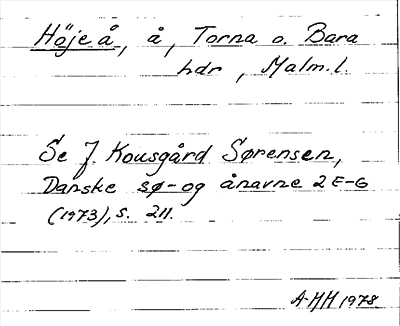 Höje å, å, Torna o. Bara
hdr, Malm. l.
Se J. Kousgård Sørensen,
Danske sø- og ånavne 2 E-G
(1973), s. 211.
A-HH 1978.